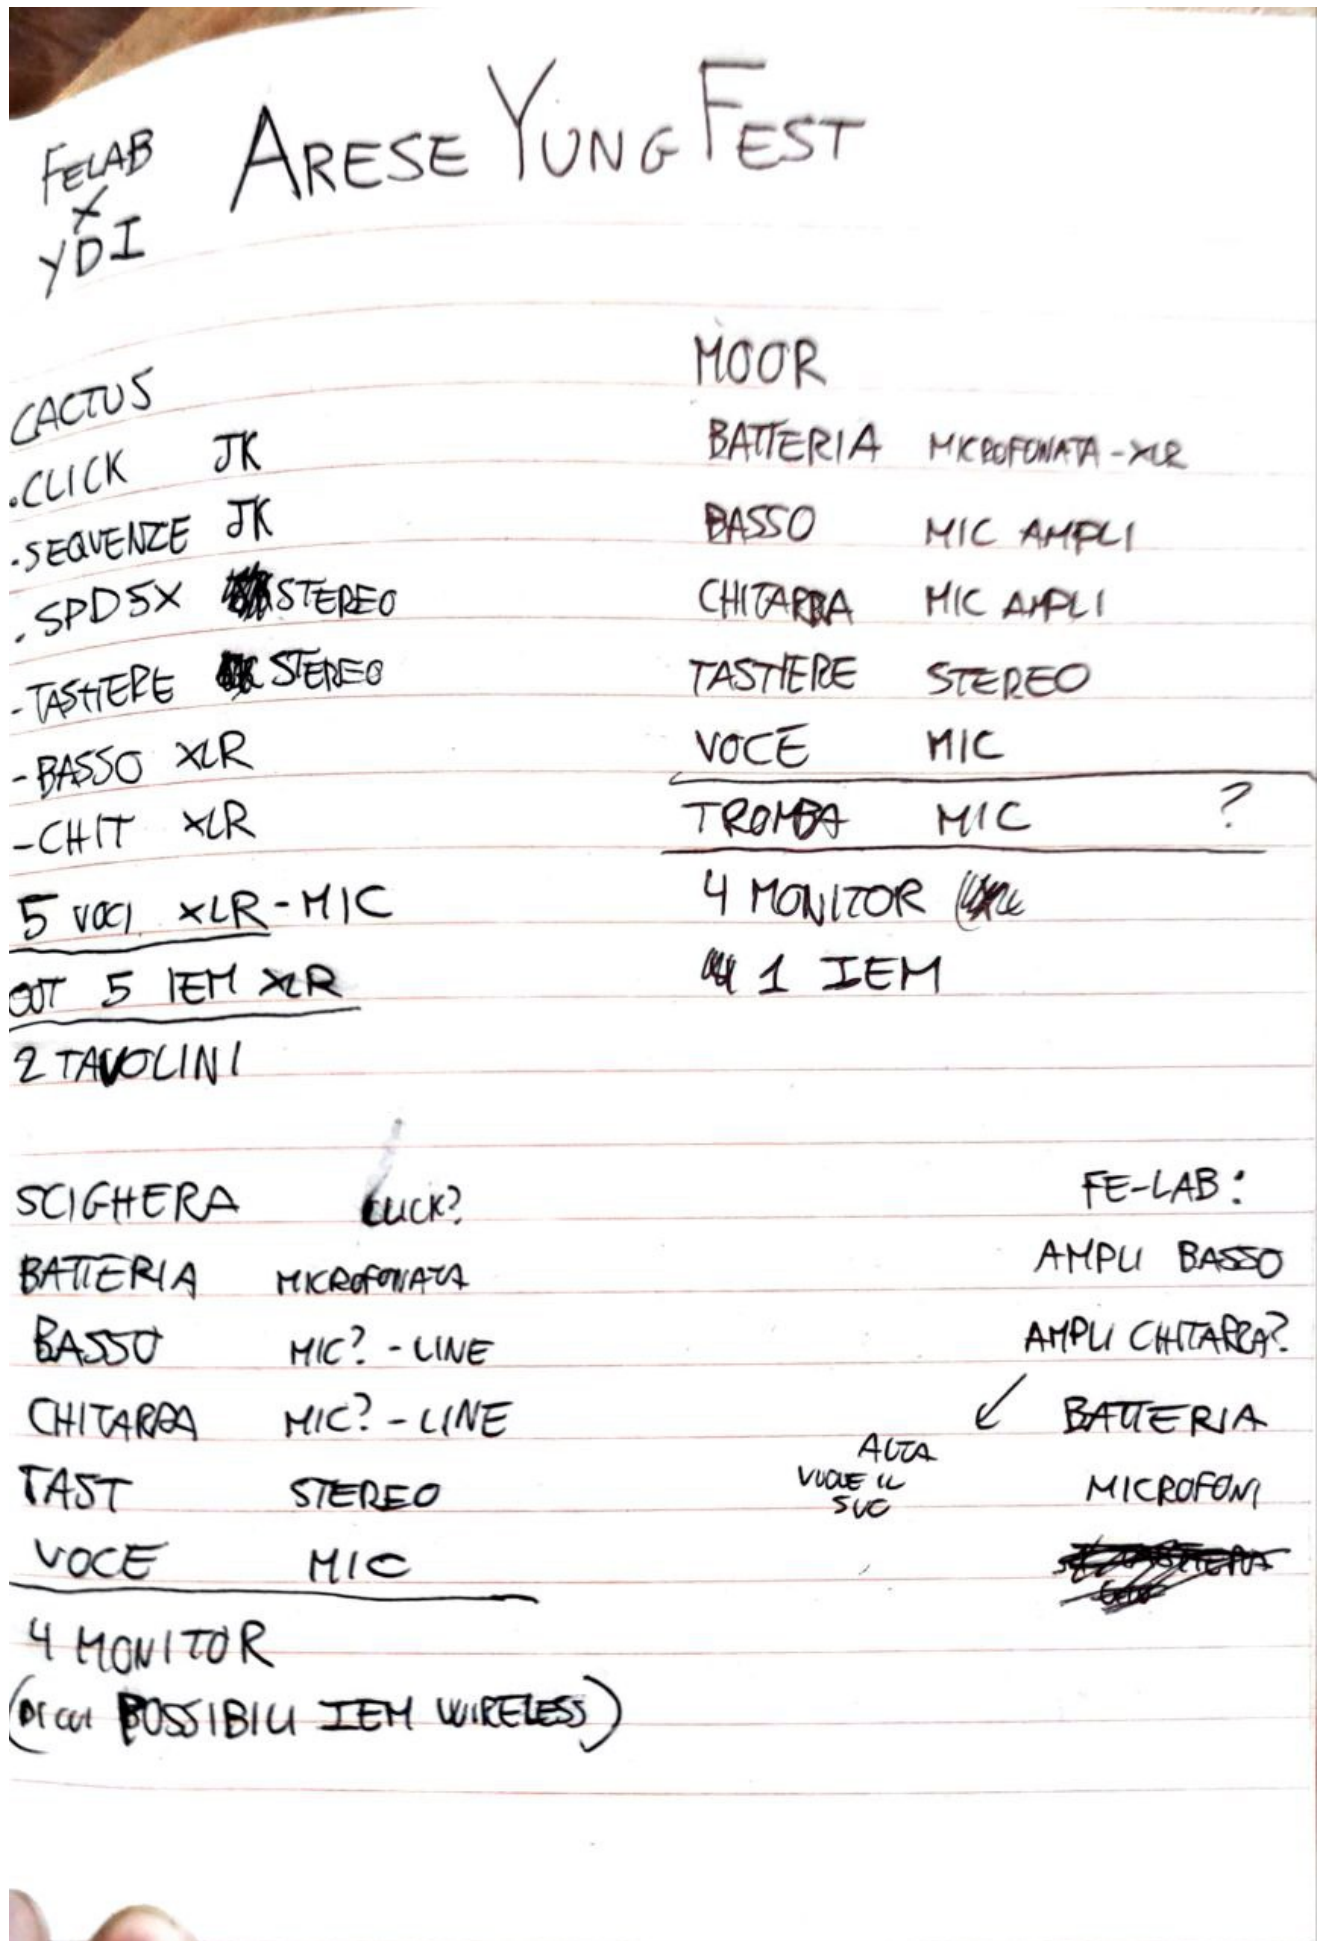 FELAB
X
YDI
ARESE YUNG FEST
CACTUS
.CLICK JK
.SEQUENZE JK
.SPDSX STEREO
-TASTIERE STEREO
-BASSO XLR
-CHIT XLR
5 VOCI XLR-MIC
OUT 5 IEM XLR
2 TAVOLINI
MOOR
BATTERIA MICROFONATA-XLR
BASSO MIC AMPLI
CHITARRA MIC AMPLI
TASTIERE STEREO
VOCE MIC
TROMBA MIC ?
4 MONITOR
1 IEM
SCIGHERA CLICK?
BATTERIA MICROFONATA
BASSO MIC? - LINE
CHITARRA MIC? - LINE
TAST STEREO
VOCE MIC
4 MONITOR
(DI CUI POSSIBILI IEM WIRELESS)
FE-LAB:
AMPLI BASSO
AMPLI CHITARRA?
BATTERIA
VUOLE IL
SUO
MICROFONI